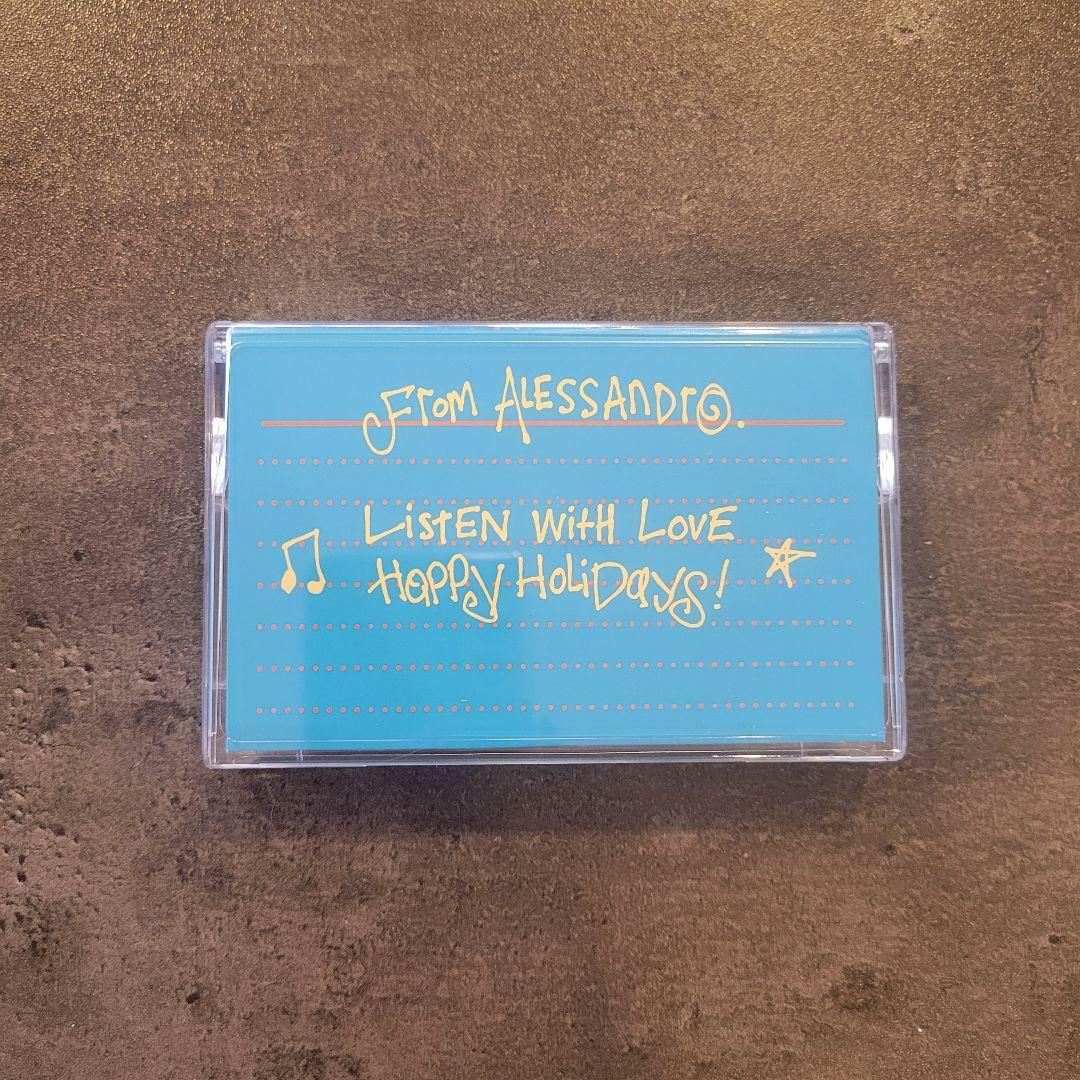 From Alessandro.
Listen with Love
Happy Holidays!